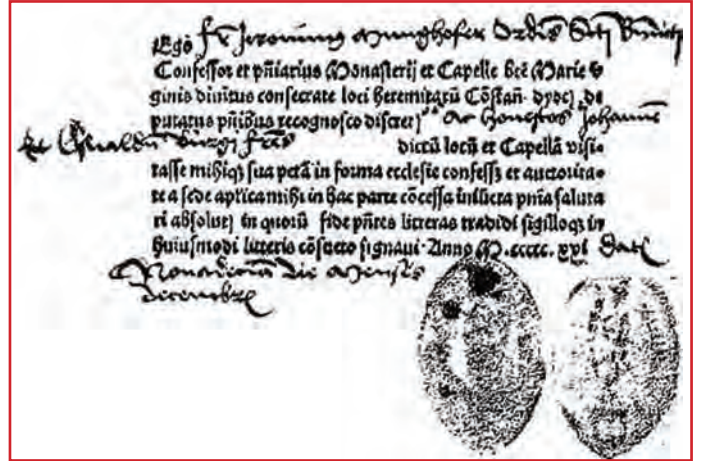 Ego fr̄ Jeronimus Munghofer Ordīs Scti
Confessor et pñiarius Monasterij et Capelle Btē Marie v̄
ginis diuitus consecrate loci heremitarū Cōstañ. dyoc̄ de
putatus pñibus recognosco discret̄ Ac Honestos Johannē
et fr̄es dictū locū et Capellā visi⸗
tasse mihiq̄ sua pctā in forma ecclesie confess̄ et auctorita⸗
te a sede aplica mihi in hac parte cōcessa iniūcta pnīa saluta
ri absolut̄ in quorū fide pñtes litteras tradidi sigilloq̄ in
huiusmodi litteris cōsueto signaui. Anno M.ccccc.xxi dat̄
die Mensis
decembr̄